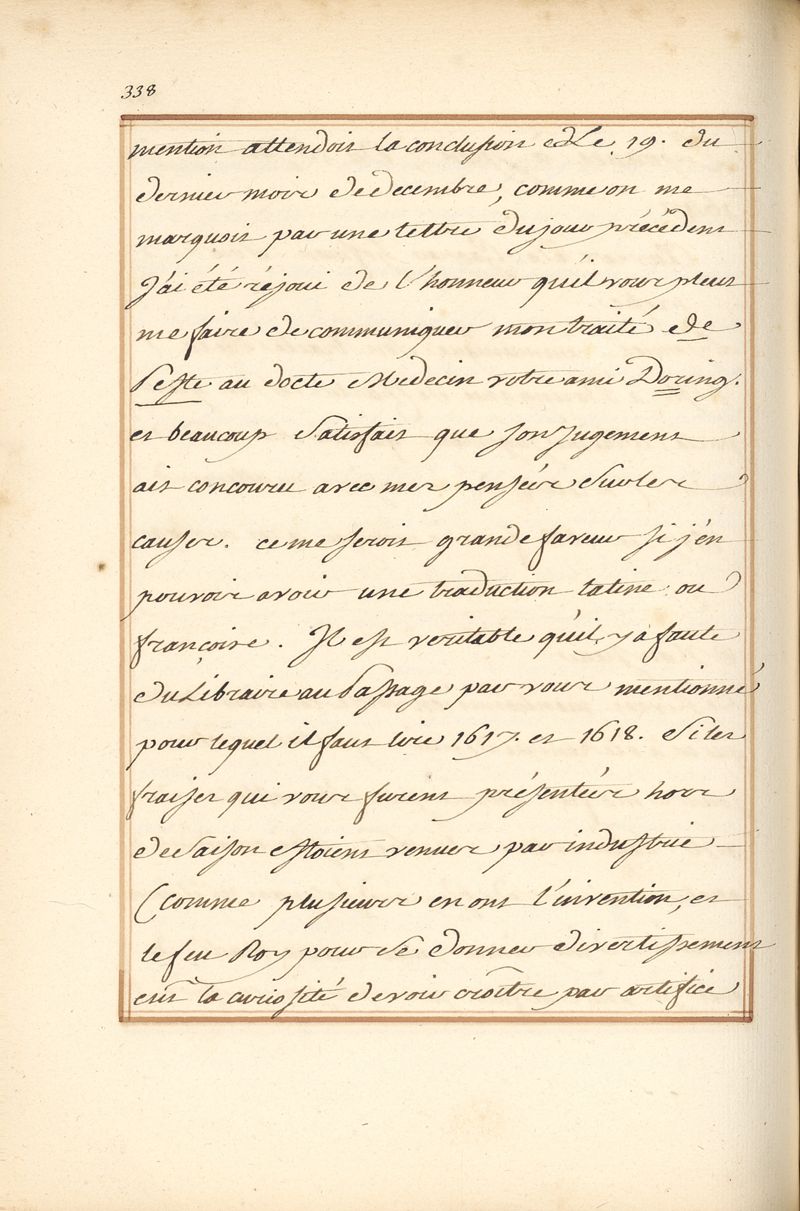 338
mention attendoit la conclusion de Le 19. du
dernier mois de decembre, comme on me
marquoit par une lettre du jour précédent
J'ai été réjoui de l'honneur qu'il vous pleut
me faire de communiquer mon traité de
Peste au docte Medecin votre ami Doring.
et beaucoup Satisfait que son jugement
ait concouru avec mes pensées Sur les
causes. ce me seroit grande faveur si j'en
pouvois avoir une traduction latine ou
françoise. Il est veritable qu'il y a faute
du Libraire au Passage par vous mentionné
pour lequel il faut lire 1617. et 1618. Si les
fraises qui vous furent présentées hors
de Saison estoient venues par industrie
(comme plusieurs en ont l'invention, et
le feu Roy pour se donner divertissement
eut la curiosité de voir croître par artifice